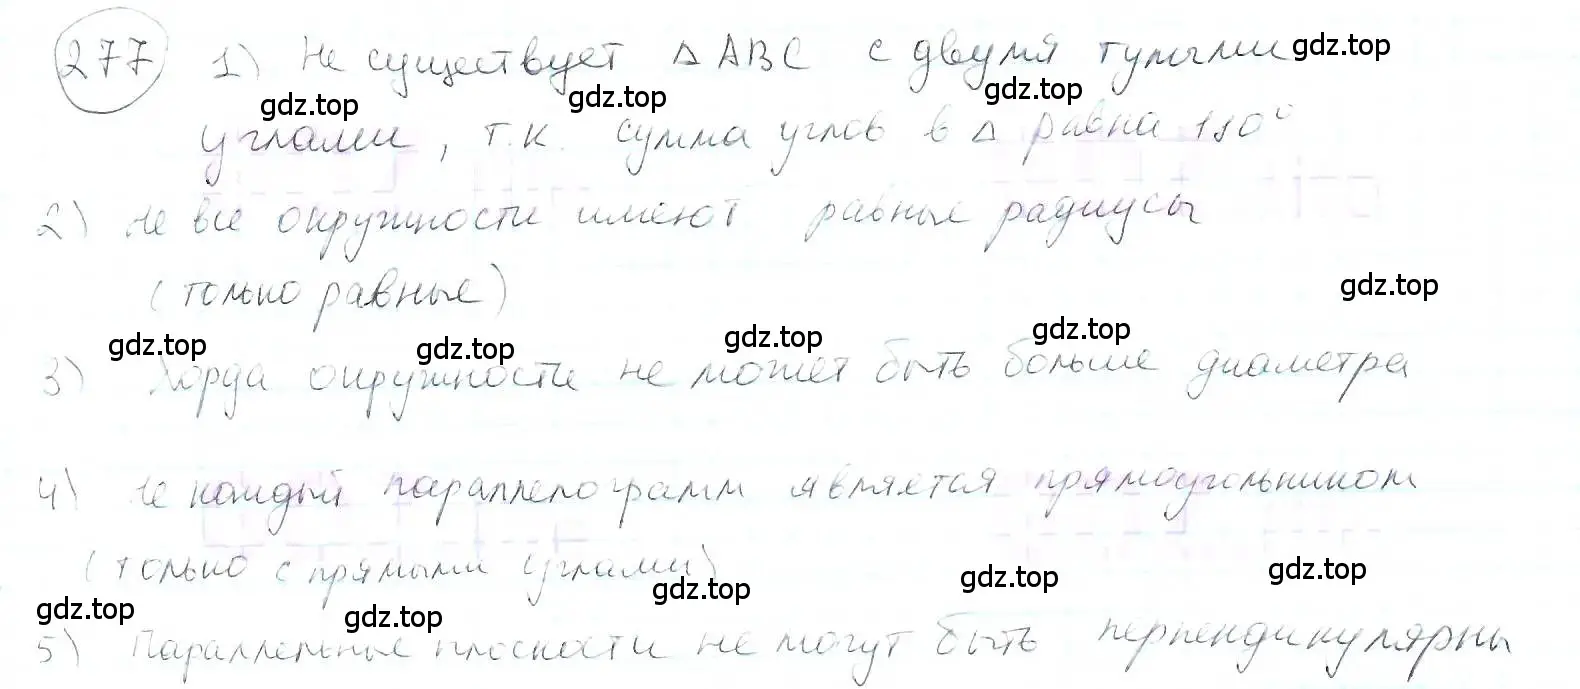 277 1) Не существует Δ ABC с двумя тупыми gdz.top
gdz.top gdz.top gdz.top
углами, т.к. сумма углов в Δ равна 180°
2) не все окружности имеют равные радиусы
(только равные) gdz.top
gdz.top gdz.top gdz.top gdz.top
3) Хорда окружности не может быть больше диаметра
4) не каждый параллелограмм является прямоугольником
(только с прямыми углами)
gdz.top gdz.top gdz.top gdz.top gdz.top
5) Параллельные плоскости не могут быть перпендикулярны